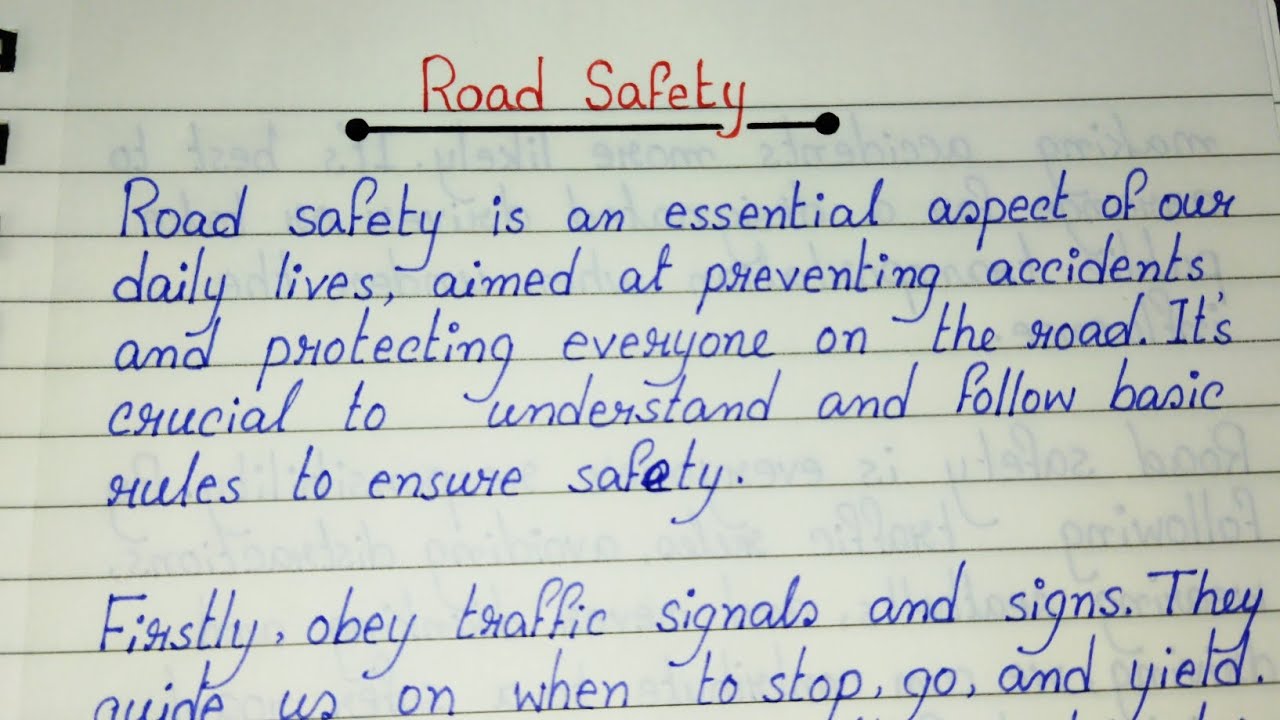 Road Safety
Road safety is an essential aspect of our
daily lives, aimed at preventing accidents
and protecting everyone on the road. It's
crucial to understand and follow basic
rules to ensure safety.
Firstly, obey traffic signals and signs. They
guide us on when to stop, go, and yield.